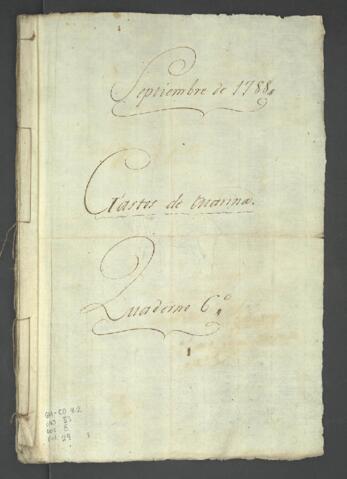 Septiembre de 1788.
Gastos de Marina.
Quaderno 6.º
GH-CO 8-2